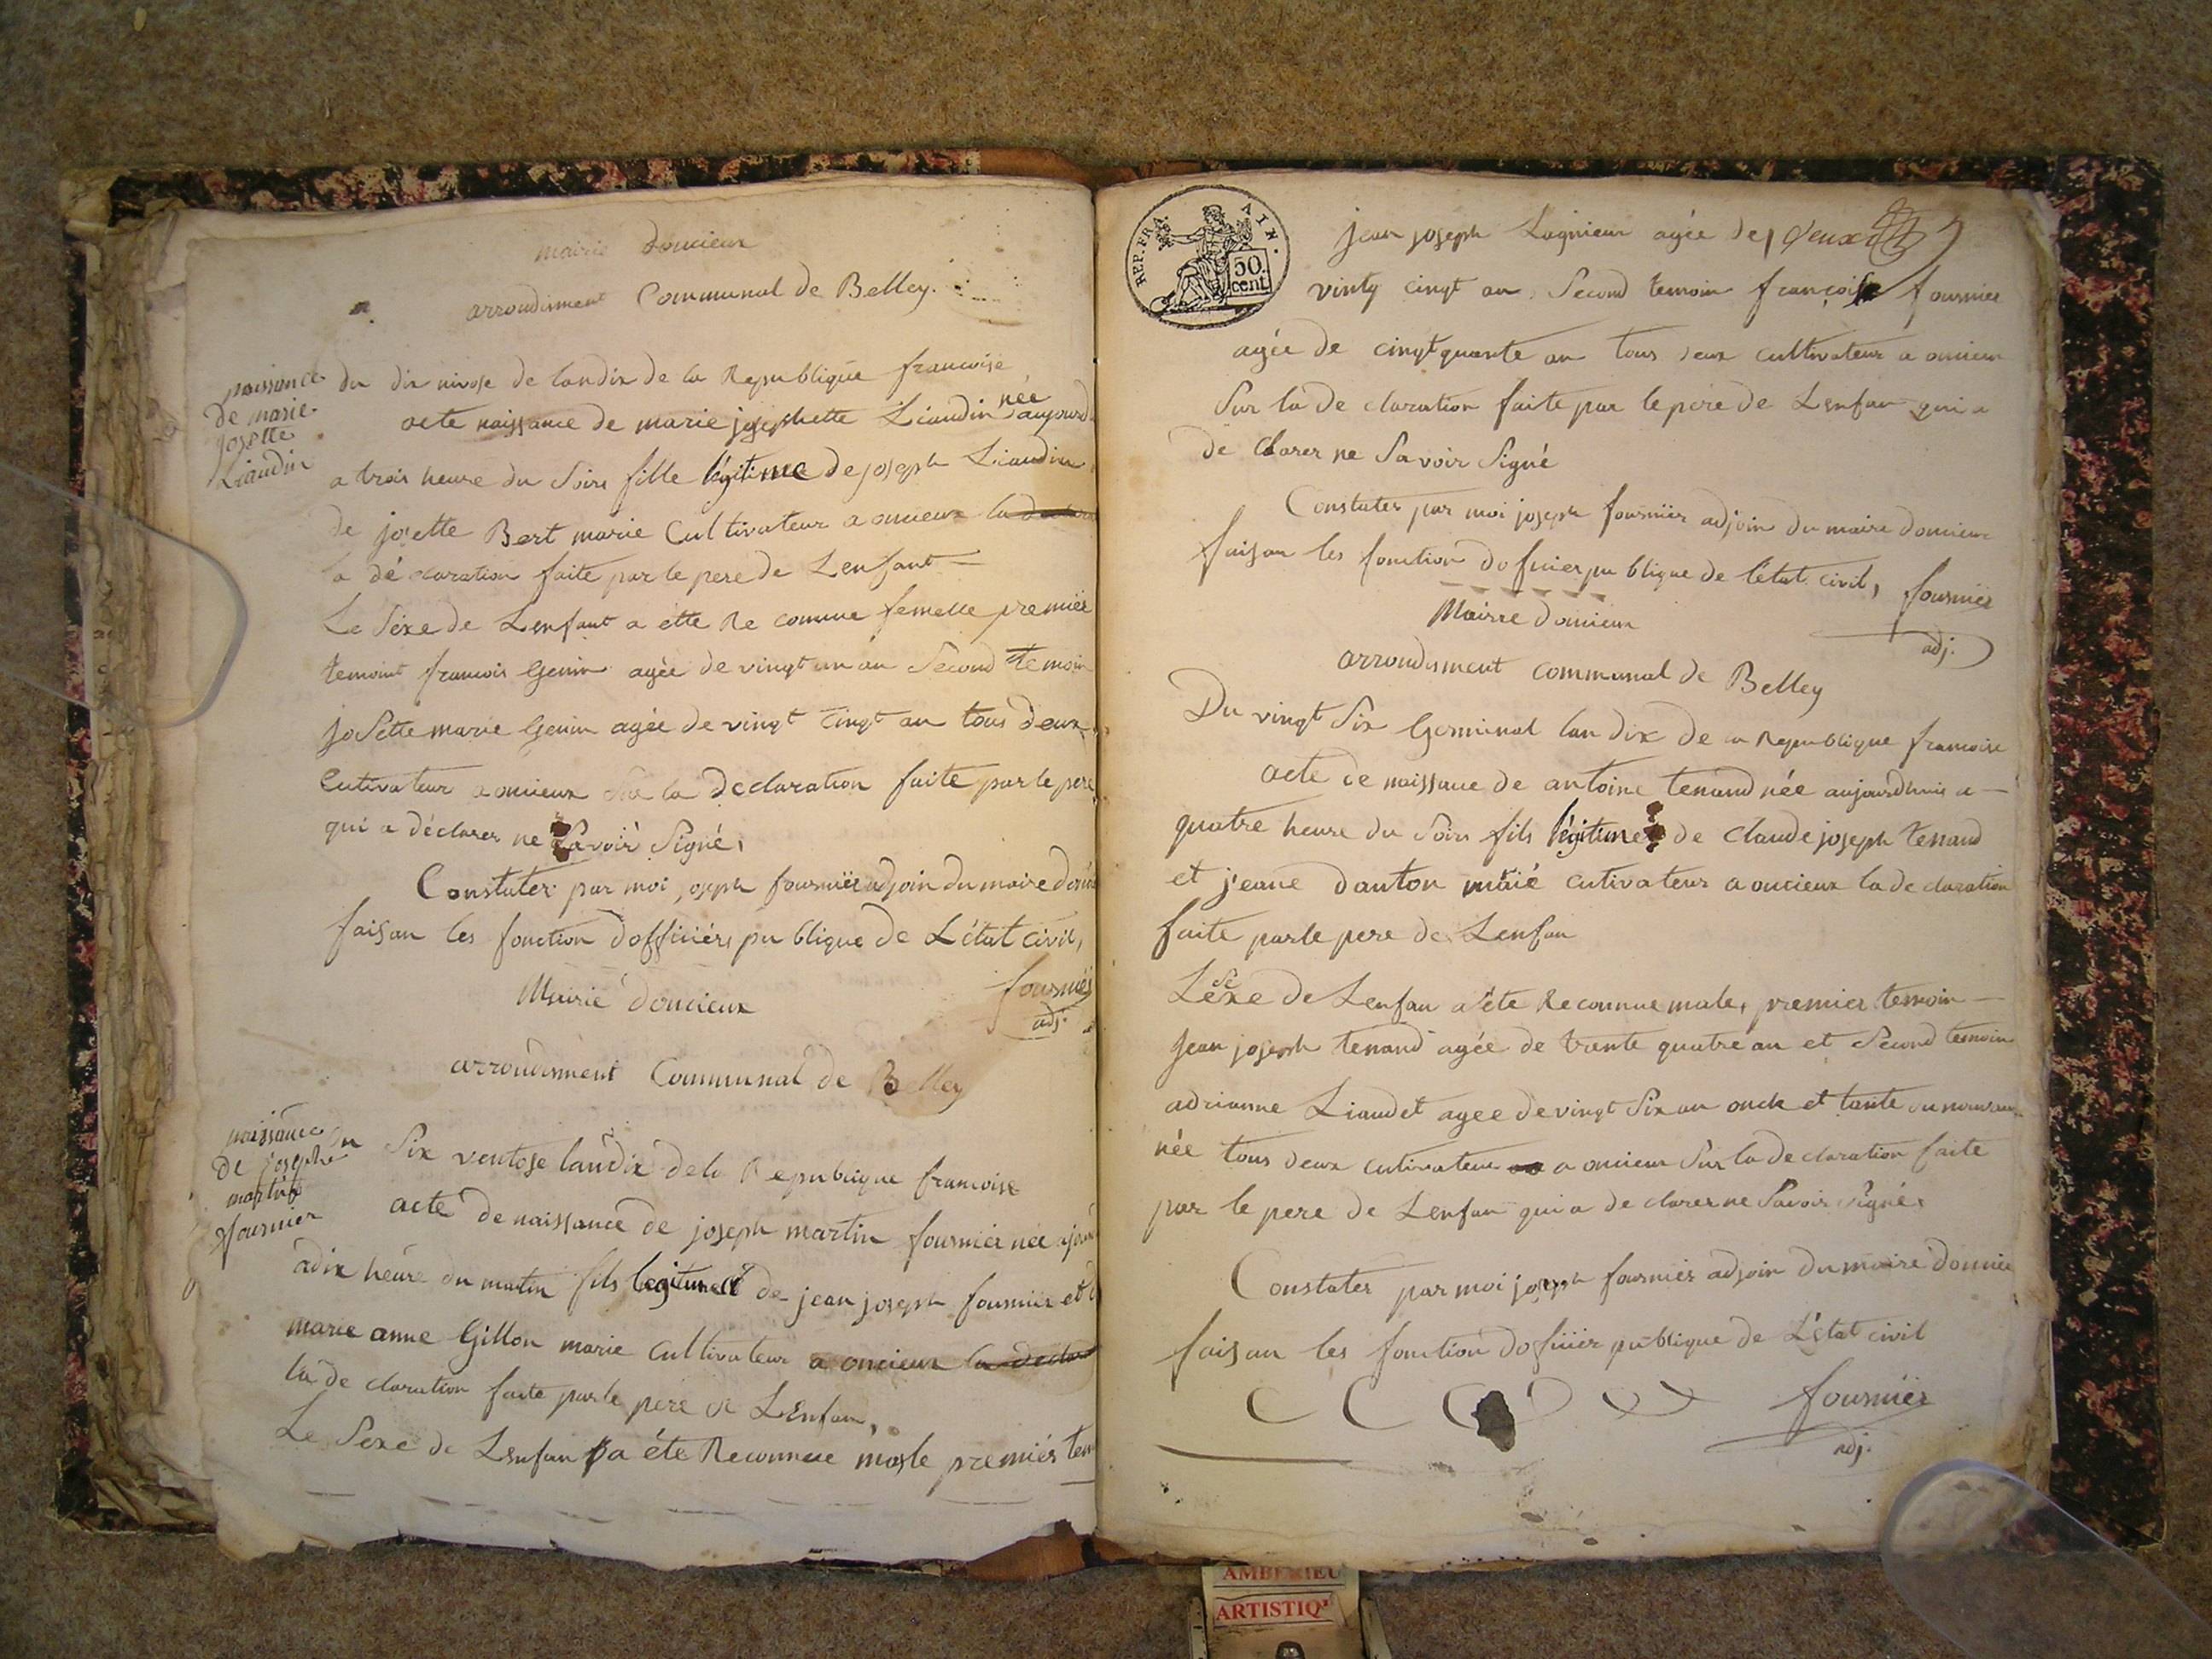 mairie doncieux
arrondisment Communal de Belley.
naissance
de marie
josette
Liaudin
du dix nivose de landix de la Republique francoise
acte naissance de marie josephette Liaudin née aujourd
a trois heure du Soirs fille légitime de joseph Liaudin
de josette Bert marie Cultivateur a oncieux la declara
la dé claration faite par le pere de Lenfant —
Le Séxe de Lenfant a étte Re connue femelle premiér
temoint francois Genin agée de vingt un an Second temoin
joSette marie Genin agée de vingt cinqt an tous deux
Cutivateur a oncieux la declaration faite par le pere
qui a déclarer ne Savoir Signé,
Constater par moi joseph fourniér adjoin du maire doncie
faisan les fonction dofficiérs pu blique de Létat civil,
fourniér
adj.
Mairie doncieux
arroudisment Communal de Belley
naissance
de joseph
martin
fournier
Du Six ventose landix dela Republique francoise
acte de naissance de joseph martin fourniér née ajour
a dix heure du matin fils legitime de jean joseph fourniér et d
marie anne Gillon marie Cultivateur a oncieux la declar
la de claration faite par le pére de LEnfan,
Le Sexe de Lenfan a éte Reconnue masle premiérs tem
REP. FRA. AIN.
50. cent
jean joseph Lagnieux agée de deux
vinty cinqt an, Second temoin françoise fournier
agée de cinqtquante an tous deux cultivateur a oncieux
Sur la de claration faite par le pere de Lenfan qui a
de clarer ne Savoir Signé
Constater par moi joseph fourniér adjoin du maire doncieux
faisan les fonction do ficier pu blique de létat civil, fourniér
adj.
Mairre doncieux
arrondisment communal de Belley
Du vingt Six Germinal lan dix de la Republique francoise
acte de naissance de antoine tenand née aujourdhuis a —
quatre heure du Soirs fils légitime de claude joseph tenand
et jeane danton marié cutivateur a oncieux la de claration
faite par le pere de Lenfan
Le Sexe de Lenfan a éte Reconnue male, premier temoin —
jean joseph tenand agée de trente quatre an et Second temoin
adrianne Liaudet agee de vingt Six an oncle et tante du nouveau
née tous deux cutivateur a oncieux Sur la de claration faite
par le pere de Lenfan qui a de clarer ne Savoir Signé.
Constater par moi joseph fourniér adjoin du maire doncieu
faisan les fonction do ficier publique de Létat civil
fourniér
adj.
AMBERIEU
ARTISTIQ